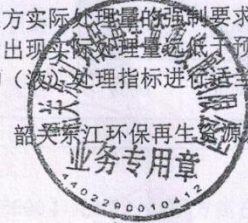 方实际处理量的强制要求
出现实际处理量远低于预
（液）处理指标进行适
韶关东江环保再生资源
业务专用章
4402290010412